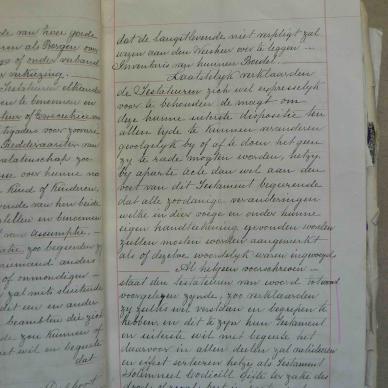 de van hare goede
ren als Borgen voor
s of onder verband
er verkiezing.
Testateuren elkander
en te benoemen en
teur of Executrice van
tigaders voor zoover
Redderaarster van
alatenschap zoo
over hunne na
Kind of Kinderen,
vende van hen beide
stellen en benoemen
van Assumptie,
zoo begeerden zy
niemand anders
of onmondigen
zal mets uitsluit
een en ander
beambten die zich
zou kunnen of
wil en begeerte
dat
dat de Langstlevende niet verpligt zal
wezen aan den Weesheer over te leggen
Inventaris van hunnen Boedel.
Laatstelyk verklaarden
de Testateuren zich wel expresselyk
voor te behouden de magt om
deze hunne uiterste dispositie ten
allen tyde te kunnen veranderen
zoodanig by of af te doen het geen
zy te rade mogten worden, hetzy
by aparte acte dan wel aan den
voet van dit Testament begeerende
dat alle zoodanige veranderingen
welke in dier voege en onder hunne
eigen handteekening gevonden worden
zullen moeten worden aangemerkt
als of dezelve woordelyk waren ingevoegd.
Al hetgeen voorschreven
staat den testateuren van woord tot woord
voorgelezen zynde, zoo verklaarden
zy zulks wel verstaan en begrepen te
hebben en dit te zyn hun Testament
en uiterste wil met begeerte het
daarvoor in allen deelen zal valideeren
en effect sorteeren hetzy als Testament
Codicill Gift ter zake des